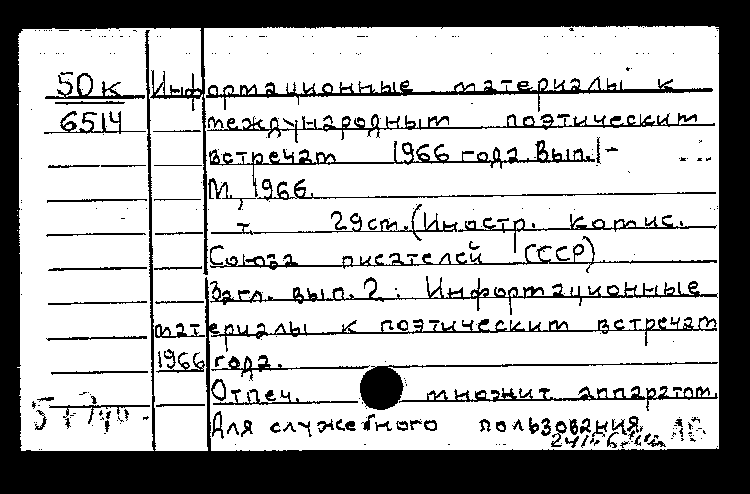 50к Информационные материалы к
6514 международным поэтическим
встречам 1966 года. Вып. 1-
М., 1966.
т. 29 см. (Иностр. комис.
Союза писателей СССР)
Загл. вып. 2: Информационные
материалы к поэтическим встречам
1966 года.
Отпеч. множит. аппаратом.
Для служебного пользования.